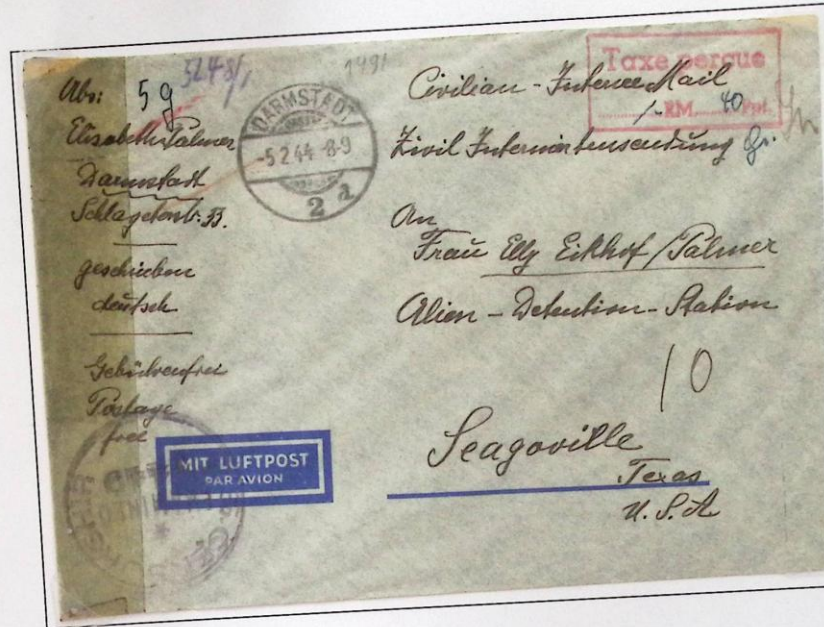 Abs: 5 g
Elisabeth Palmer
Darmstadt
33.
geschrieben
deutsch
Gebührenfrei
Postage
free
1491
DARMSTADT
-5 2 44 8-9
2
Taxe perçue
RM. 40
Civilian-Internee Mail
An
Frau Elly Eikhof/Palmer
Alien-Detention-Station
10
Seagoville
Texas
U.S.A
MIT LUFTPOST
PAR AVION